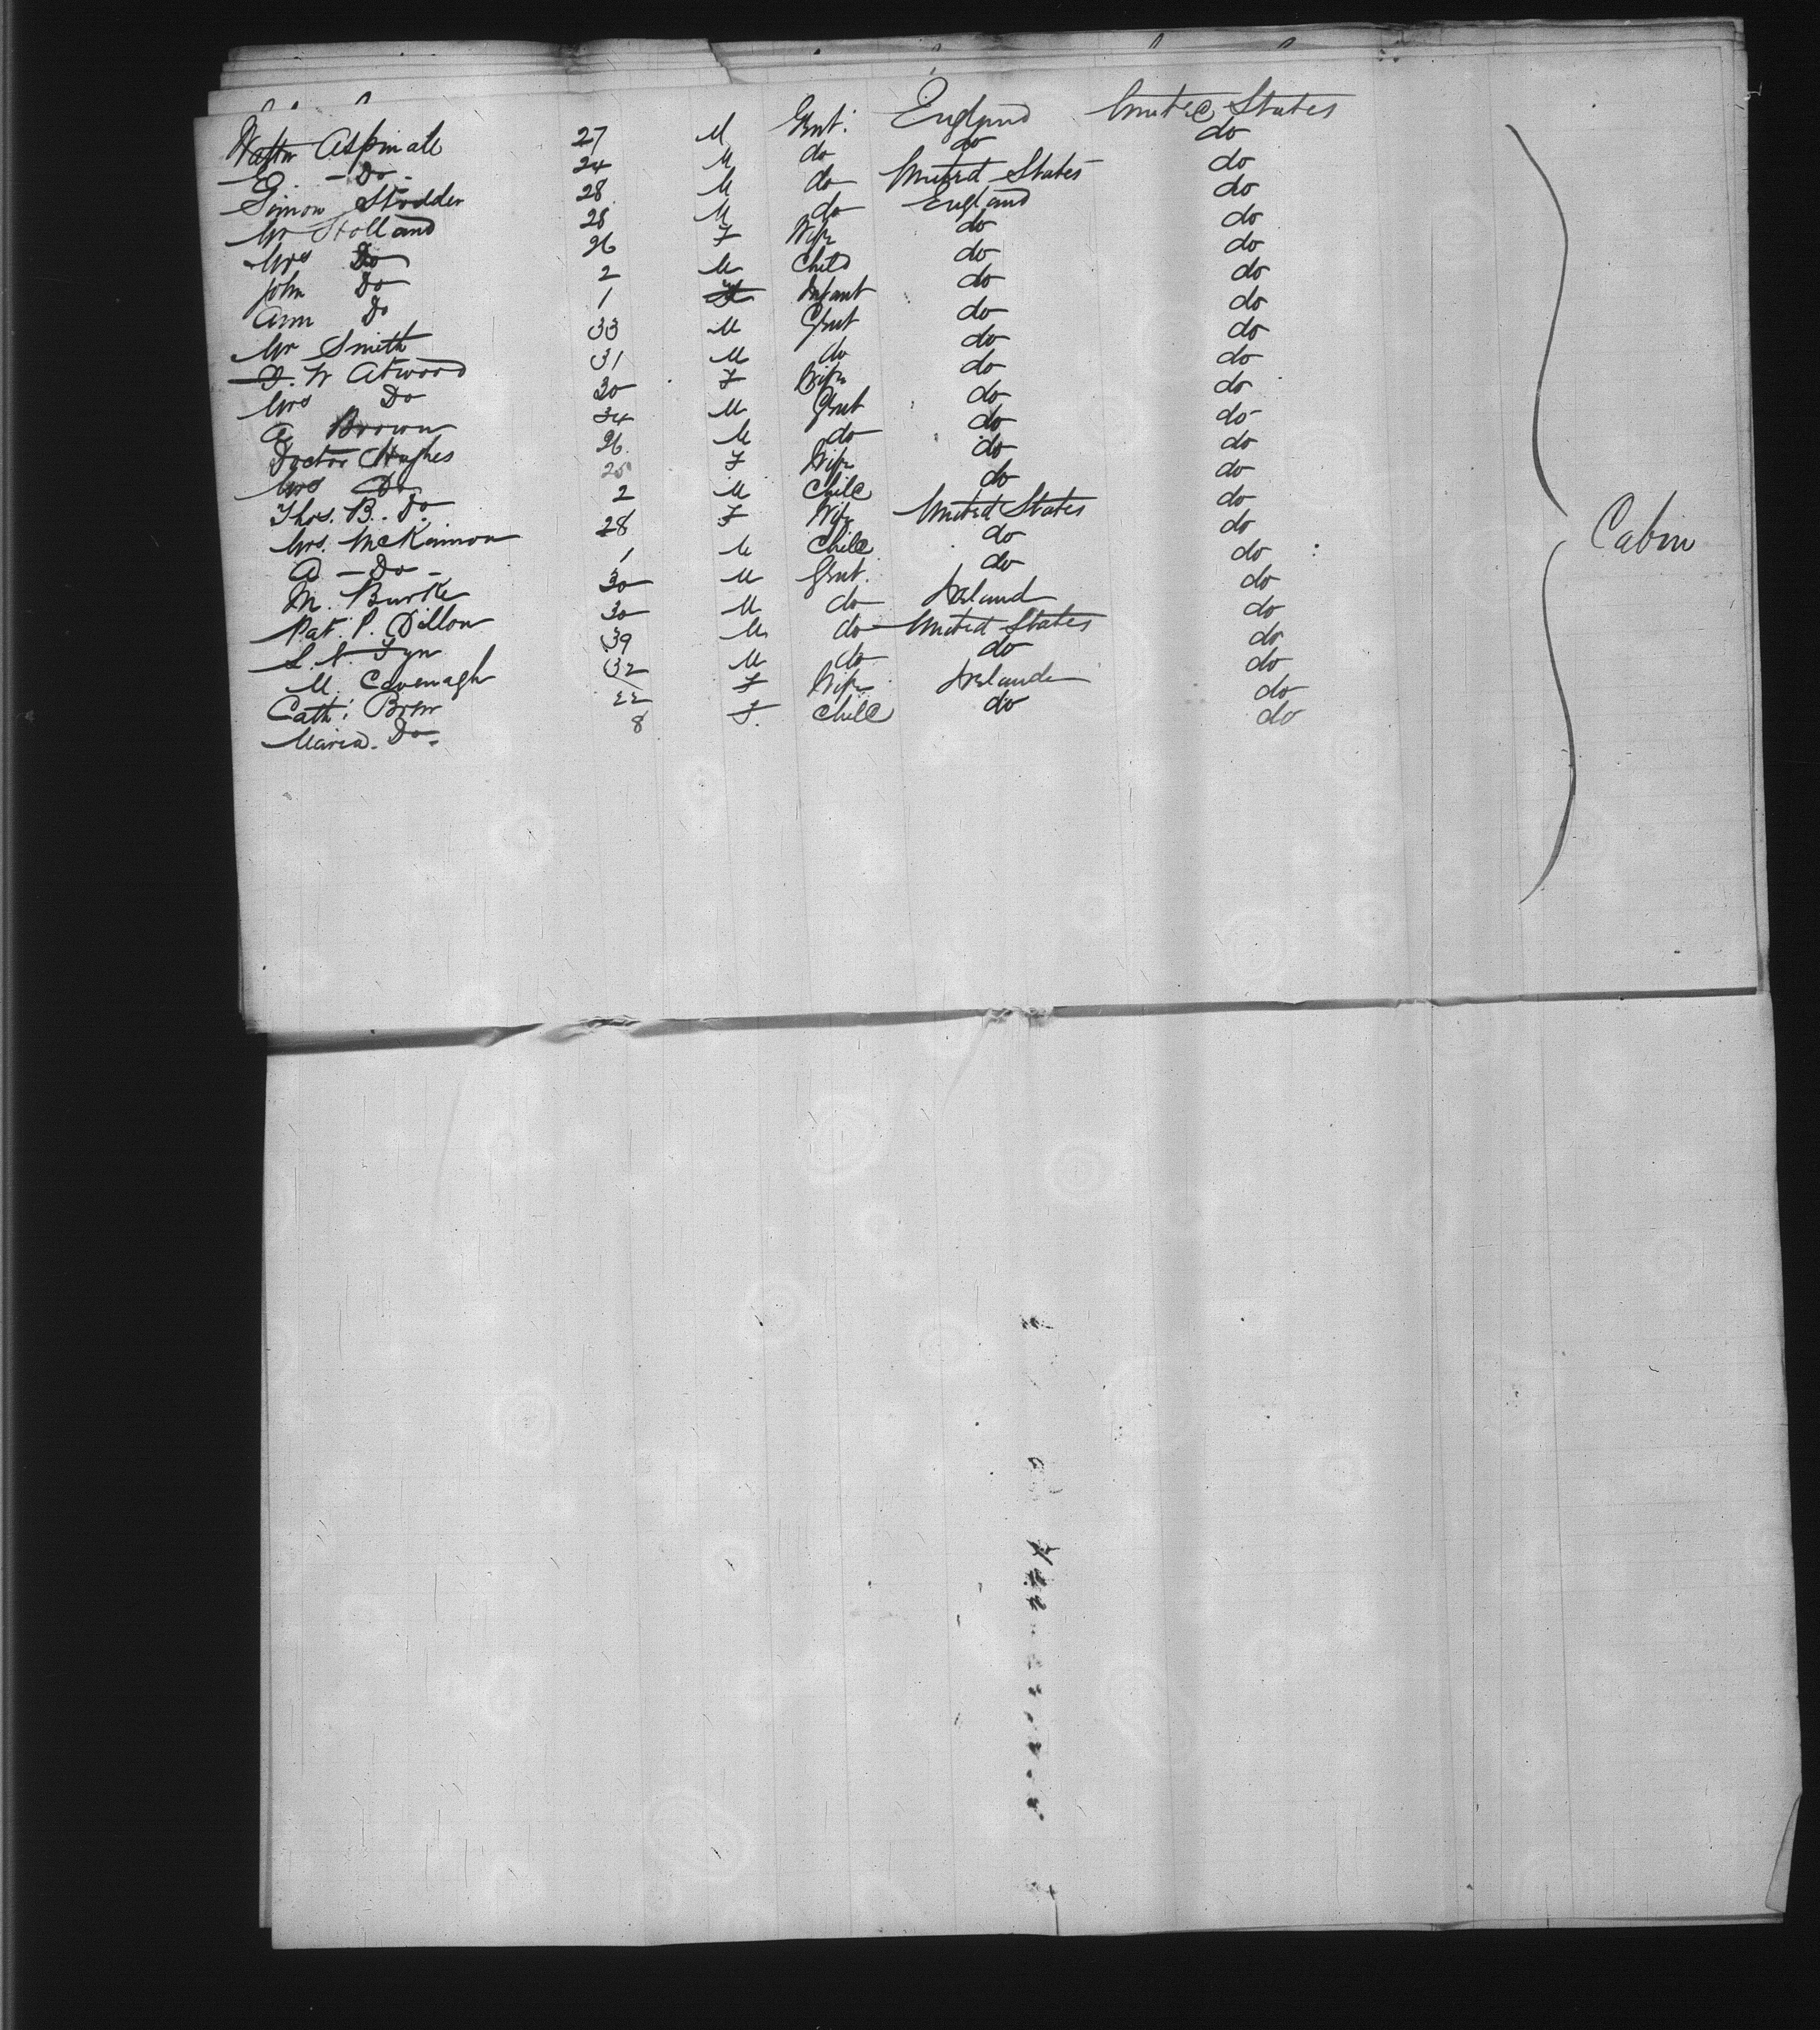 Walter Aspinall 27 M Gent. England United States
E. - Do - 24 M do do do
Simon Stodder 28 M do United States do
Mr Holland 28 M do England do
Mrs Do 26 F Wife do do
John Do 2 M Child do do
Ann Do 1 F Infant do do
Mr Smith 33 M Gent do do
W Atwood 31 M do do do
Mrs Do 30 F Wife do do
A Brown 34 M Gent do do
Doctor Hughes 26 M do do do
Mrs Do 25 F Wife do do
Thos. B. Do. 2 M Child do do
Mrs. McKinnon 28 F Wife United States do
A - Do - 1 M Child do do
M. Burke 30 M Gent. do do
Pat. P. Dillon 30 M do Ireland do
39 M do United States do
M. Cavenagh 32 M do do do
Cath: Brew 22 F Wife Ireland do
Maria. Do. 8 F. Child do do
Cabin